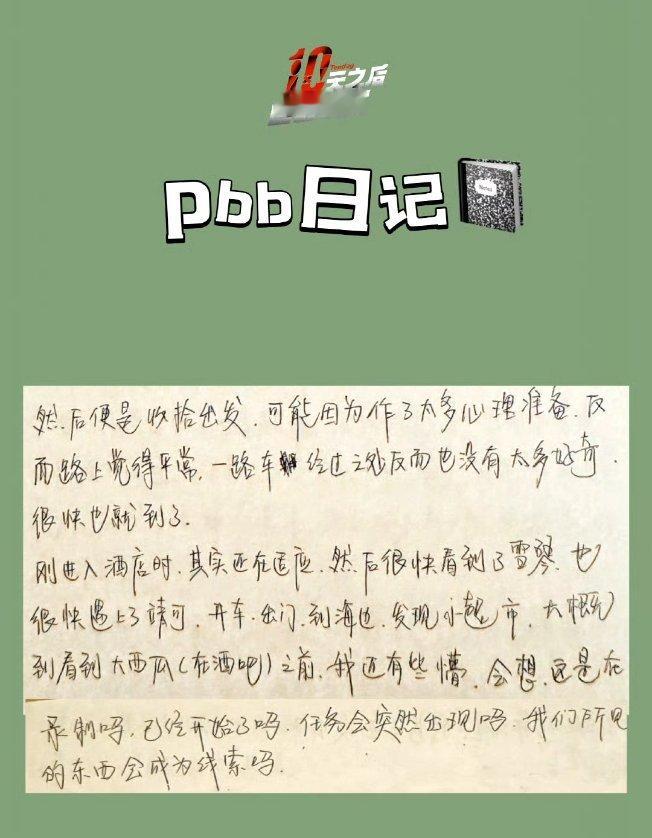 10天之后
Tenday
pbb日记
Notes
然后便是收拾出发，可能因为作了太多心理准备，反
而路上觉得平常，一路车经过之处反而也没有太多好奇．
很快也就到了．
刚进入酒店时，其实还在适应，然后很快看到了雪琴，也
很快遇上了靖可，开车，出门，到海边，发现小超市，大概
到看到大西瓜（在酒吧）之前，我还有些懵，会想，这是在
录制吗，已经开始了吗，任务会突然出现吗，我们所见
的东西会成为线索吗．